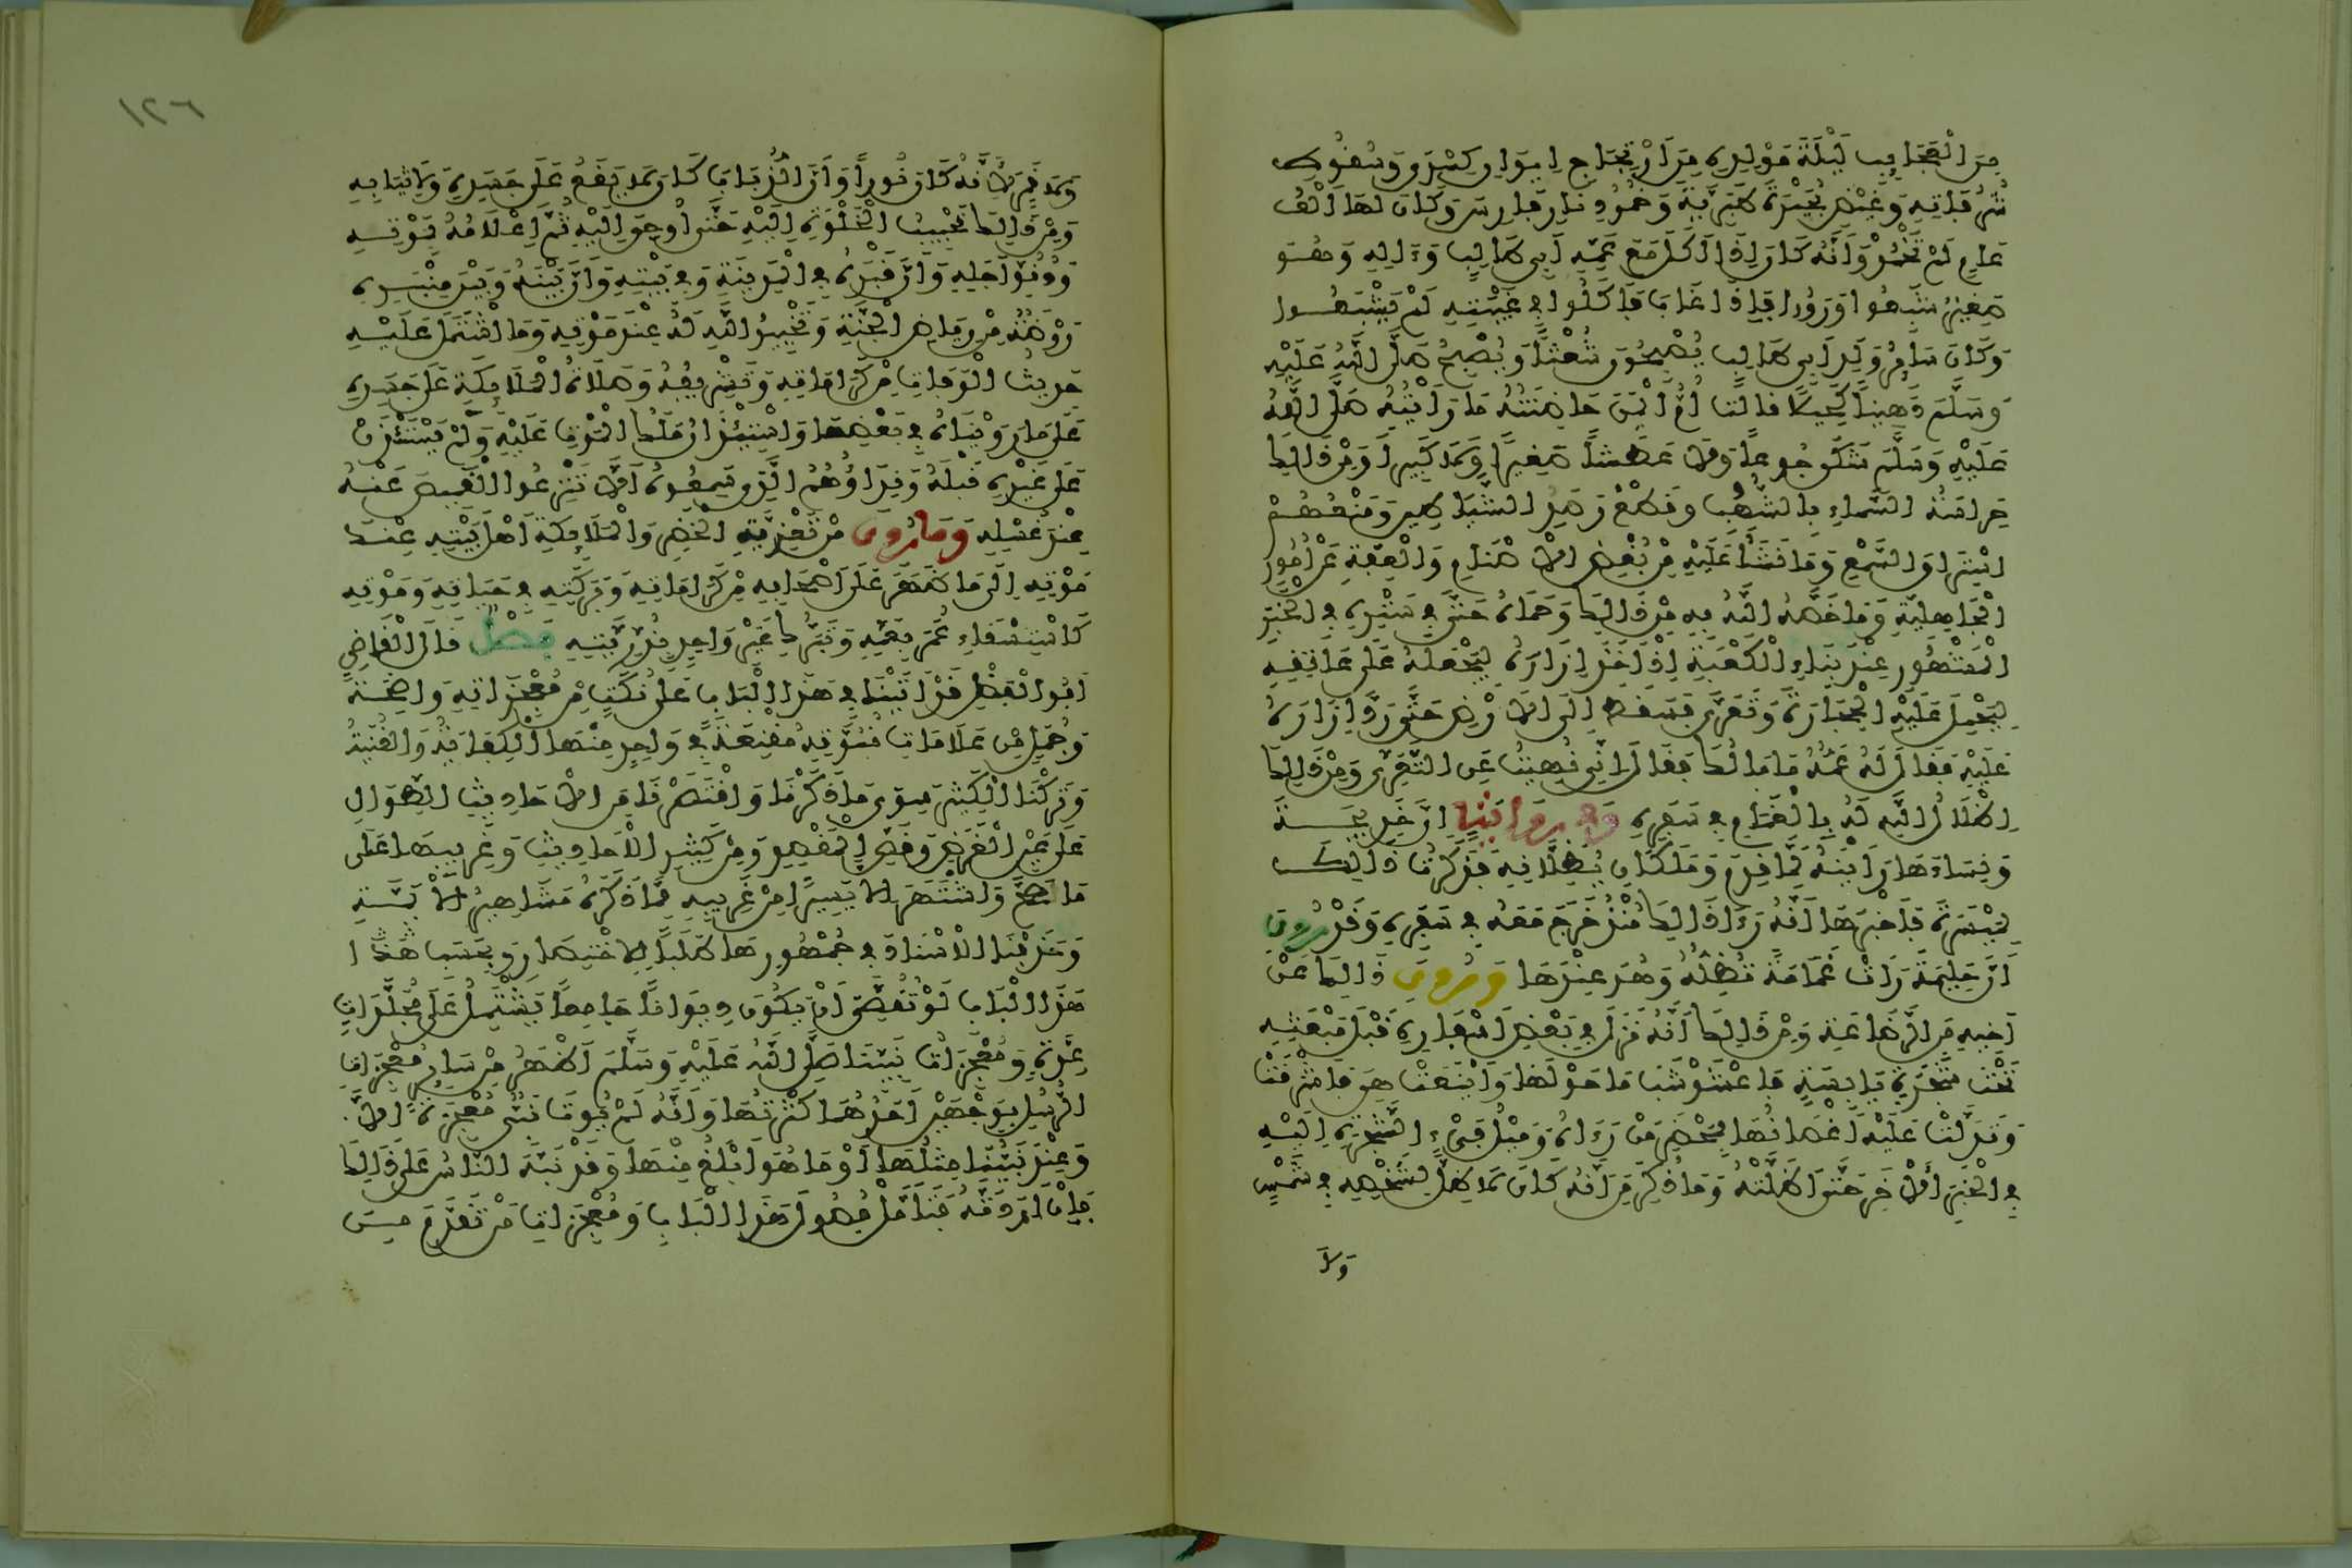 مِنَ الْعَجَايِبِ لَيْلَةَ مَوْلِدِهِ مِنَ ارْتِجَاجِ إِيوَانِ كِسْرَى وَسُقُوطِ
شُرُفَاتِهِ وَغَيْضِ بُحَيْرَةِ طَبَرِيَّةَ وَخُمُودِ نَارِ فَارِسَ وَكَانَ لَهَا أَلْفُ
عَامٍ لَمْ تَخْمُدْ وَأَنَّهُ كَانَ إِذَا أَكَلَ مَعَ عَمِّهِ أَبِي طَالِبٍ وَءَالِهِ وَهُوَ
صَغِيرٌ شَبِعُوا وَرَوُوا فَإِذَا غَابَ فَأَكَلُوا فِي غَيْبَتِهِ لَمْ يَشْبَعُوا
وَكَانَ سَايِرُ وَلَدِ أَبِي طَالِبٍ يُصْبِحُونَ شُعْثًا وَيُصْبِحُ صَلَّى اللَّهُ عَلَيْهِ
وَسَلَّمَ دَهِينًا كَحِيلًا قَالَتْ أُمُّ أَيْمَنَ حَاضِنَتُهُ مَا رَأَيْتُهُ صَلَّى اللَّهُ
عَلَيْهِ وَسَلَّمَ شَكَى جُوعًا وَلَا عَطَشًا صَغِيرًا وَلَا كَبِيرًا وَمِنْ ذَلِكَ
حِرَاسَةُ السَّمَاءِ بِالشُّهُبِ وَقَطْعُ رَصَدِ الشَّيَاطِينِ وَمَنْعُهُمْ
اسْتِرَاقَ السَّمْعِ وَمَا نَشَأَ عَلَيْهِ مِنْ بُغْضِ الْأَصْنَامِ وَالْعِفَّةِ عَنْ أُمُورِ
الْجَاهِلِيَّةِ وَمَا خَصَّهُ اللَّهُ بِهِ مِنْ ذَلِكَ وَحَمَاهُ حَتَّى فِي سَتْرِهِ فِي الْخَبَرِ
الْمَشْهُورِ عِنْدَ بِنَاءِ الْكَعْبَةِ إِذْ أَخَذَ إِزَارَهُ لِيَجْعَلَهُ عَلَى عَاتِقِهِ
لِيَحْمِلَ عَلَيْهِ الْحِجَارَةَ وَتَعَرَّى فَسَقَطَ إِلَى الْأَرْضِ حَتَّى رَدَّ إِزَارَهُ
عَلَيْهِ فَقَالَ لَهُ عَمُّهُ مَا بَالُكَ فَقَالَ إِنِّي نُهِيتُ عَنِ التَّعَرِّي وَمِنْ ذَلِكَ
إِظْلَالُ اللَّهِ لَهُ بِالْغَمَامِ فِي سَفَرِهِ وَفِي رِوَايَةٍ إِنَّ خَدِيجَةَ
وَنِسَاءَهَا رَأَيْنَهُ لَمَّا قَدِمَ وَمَلَكَانِ يُظِلَّانِهِ فَذَكَرَتْ ذَلِكَ
لِمَيْسَرَةَ فَأَخْبَرَهَا أَنَّهُ رَءَا ذَلِكَ مُنْذُ خَرَجَ مَعَهُ فِي سَفَرِهِ وَقَدْ رُوِيَ
أَنَّ حَلِيمَةَ رَأَتْ غَمَامَةً تُظِلُّهُ وَهُوَ عِنْدَهَا وَرُوِيَ ذَلِكَ عَنْ
أَخِيهِ مِنَ الرَّضَاعَةِ وَمِنْ ذَلِكَ أَنَّهُ نَزَلَ فِي بَعْضِ أَسْفَارِهِ قَبْلَ مَبْعَثِهِ
تَحْتَ شَجَرَةٍ يَابِسَةٍ فَاعْشَوْشَبَ مَا حَوْلَهَا وَأَيْنَعَتْ هِيَ فَأَشْرَقَتْ
وَتَدَلَّتْ عَلَيْهِ أَغْصَانُهَا بِمَحْضَرِ مَنْ رَءَاهُ وَمَيْلُ فَيْءِ الشَّجَرَةِ إِلَيْهِ
فِي الْخَبَرِ الْآخَرِ حَتَّى أَظَلَّتْهُ وَمَا ذُكِرَ مِنْ أَنَّهُ كَانَ لَا ظِلَّ لِشَخْصِهِ فِي شَمْسٍ
وَلَا
١٢٦
وَلَا قَمَرٍ لِأَنَّهُ كَانَ نُورًا وَأَنَّ الذُّبَابَ كَانَ لَا يَقَعُ عَلَى جَسَدِهِ وَلَا ثِيَابِهِ
وَمِنْ ذَلِكَ تَحْبِيبُ الْخَلْوَةِ إِلَيْهِ حَتَّى أُوحِيَ إِلَيْهِ ثُمَّ إِعْلَامُهُ بِمَوْتِهِ
وَدُنُوِّ أَجَلِهِ وَأَنَّ قَبْرَهُ فِي الْمَدِينَةِ وَفِي بَيْتِهِ وَأَنَّ بَيْنَهُ وَبَيْنَ مِنْبَرِهِ
رَوْضَةٌ مِنْ رِيَاضِ الْجَنَّةِ وَتَخْيِيرُ اللَّهِ لَهُ عِنْدَ مَوْتِهِ وَمَا اشْتَمَلَ عَلَيْهِ
حَدِيثُ الْوَفَاةِ مِنْ كَرَامَاتِهِ وَتَشْرِيفِهِ وَصَلَاةُ الْمَلَايِكَةِ عَلَى جَسَدِهِ
عَلَى مَا رَوَيْنَاهُ فِي بَعْضِهَا وَاسْتِئْذَانُ مَلَكِ الْمَوْتِ عَلَيْهِ وَلَمْ يَسْتَأْذِنْ
عَلَى غَيْرِهِ قَبْلَهُ وَنِدَاؤُهُمُ الَّذِي سَمِعُوهُ أَلَّا تَنْزِعُوا الْقَمِيصَ عَنْهُ
عِنْدَ غُسْلِهِ وَمَا رُوِيَ مِنْ تَعْزِيَةِ الْخَضِرِ وَالْمَلَايِكَةِ أَهْلَ بَيْتِهِ عِنْدَ
مَوْتِهِ إِلَى مَا ظَهَرَ عَلَى أَصْحَابِهِ مِنْ كَرَامَاتِهِ وَبَرَكَتِهِ فِي حَيَاتِهِ وَمَوْتِهِ
كَاسْتِسْقَاءِ عُمَرَ بِعَمِّهِ وَتَبَرُّكِ غَيْرِ وَاحِدٍ بِذُرِّيَّتِهِ فَصْلٌ قَالَ الْقَاضِي
أَبُو الْفَضْلِ قَدْ أَتَيْنَا فِي هَذَا الْبَابِ عَلَى نُكَتٍ مِنْ مُعْجِزَاتِهِ وَاضِحَةٍ
وَجُمَلٍ مِنْ عَلَامَاتِ نُبُوَّتِهِ مُقْنِعَةٍ فِي وَاحِدٍ مِنْهَا الْكِفَايَةُ وَالْغُنْيَةُ
وَتَرَكْنَا الْكَثِيرَ سِوَى مَا ذَكَرْنَا وَاقْتَصَرْنَا مِنَ الْأَحَادِيثِ الطِّوَالِ
عَلَى عَيْنِ الْغَرَضِ وَفَصِّ الْمَقْصِدِ وَمِنْ كَثِيرِ الْأَحَادِيثِ وَغَرِيبِهَا عَلَى
مَا صَحَّ وَاشْتَهَرَ إِلَّا يَسِيرًا مِنْ غَرِيبِهِ مِمَّا ذَكَرَهُ مَشَاهِيرُ الْأَيِمَّةِ
وَحَذَفْنَا الْإِسْنَادَ فِي جُمْهُورِهَا طَلَبًا لِلِاخْتِصَارِ وَبِحَسَبِ هَذَا
هَذَا الْبَابِ لَوْ تُقُصِّيَ أَنْ يَكُونَ دِيوَانًا جَامِعًا يَشْتَمِلُ عَلَى مُجَلَّدَاتٍ
عِدَّةٍ وَمُعْجِزَاتُ نَبِيِّنَا صَلَّى اللَّهُ عَلَيْهِ وَسَلَّمَ أَظْهَرُ مِنْ سَايِرِ مُعْجِزَاتِ
الرُّسُلِ بِوَجْهَيْنِ أَحَدُهُمَا كَثْرَتُهَا وَأَنَّهُ لَمْ يُؤْتَ نَبِيٌّ مُعْجِزَةً إِلَّا
وَعِنْدَ نَبِيِّنَا مِثْلُهَا أَوْ مَا هُوَ أَبْلَغُ مِنْهَا وَقَدْ نَبَّهَ النَّاسُ عَلَى ذَلِكَ
فَإِنْ أَرَدْتَهُ فَتَأَمَّلْ فُصُولَ هَذَا الْبَابِ وَمُعْجِزَاتِ مَنْ تَقَدَّمَ مِنَ